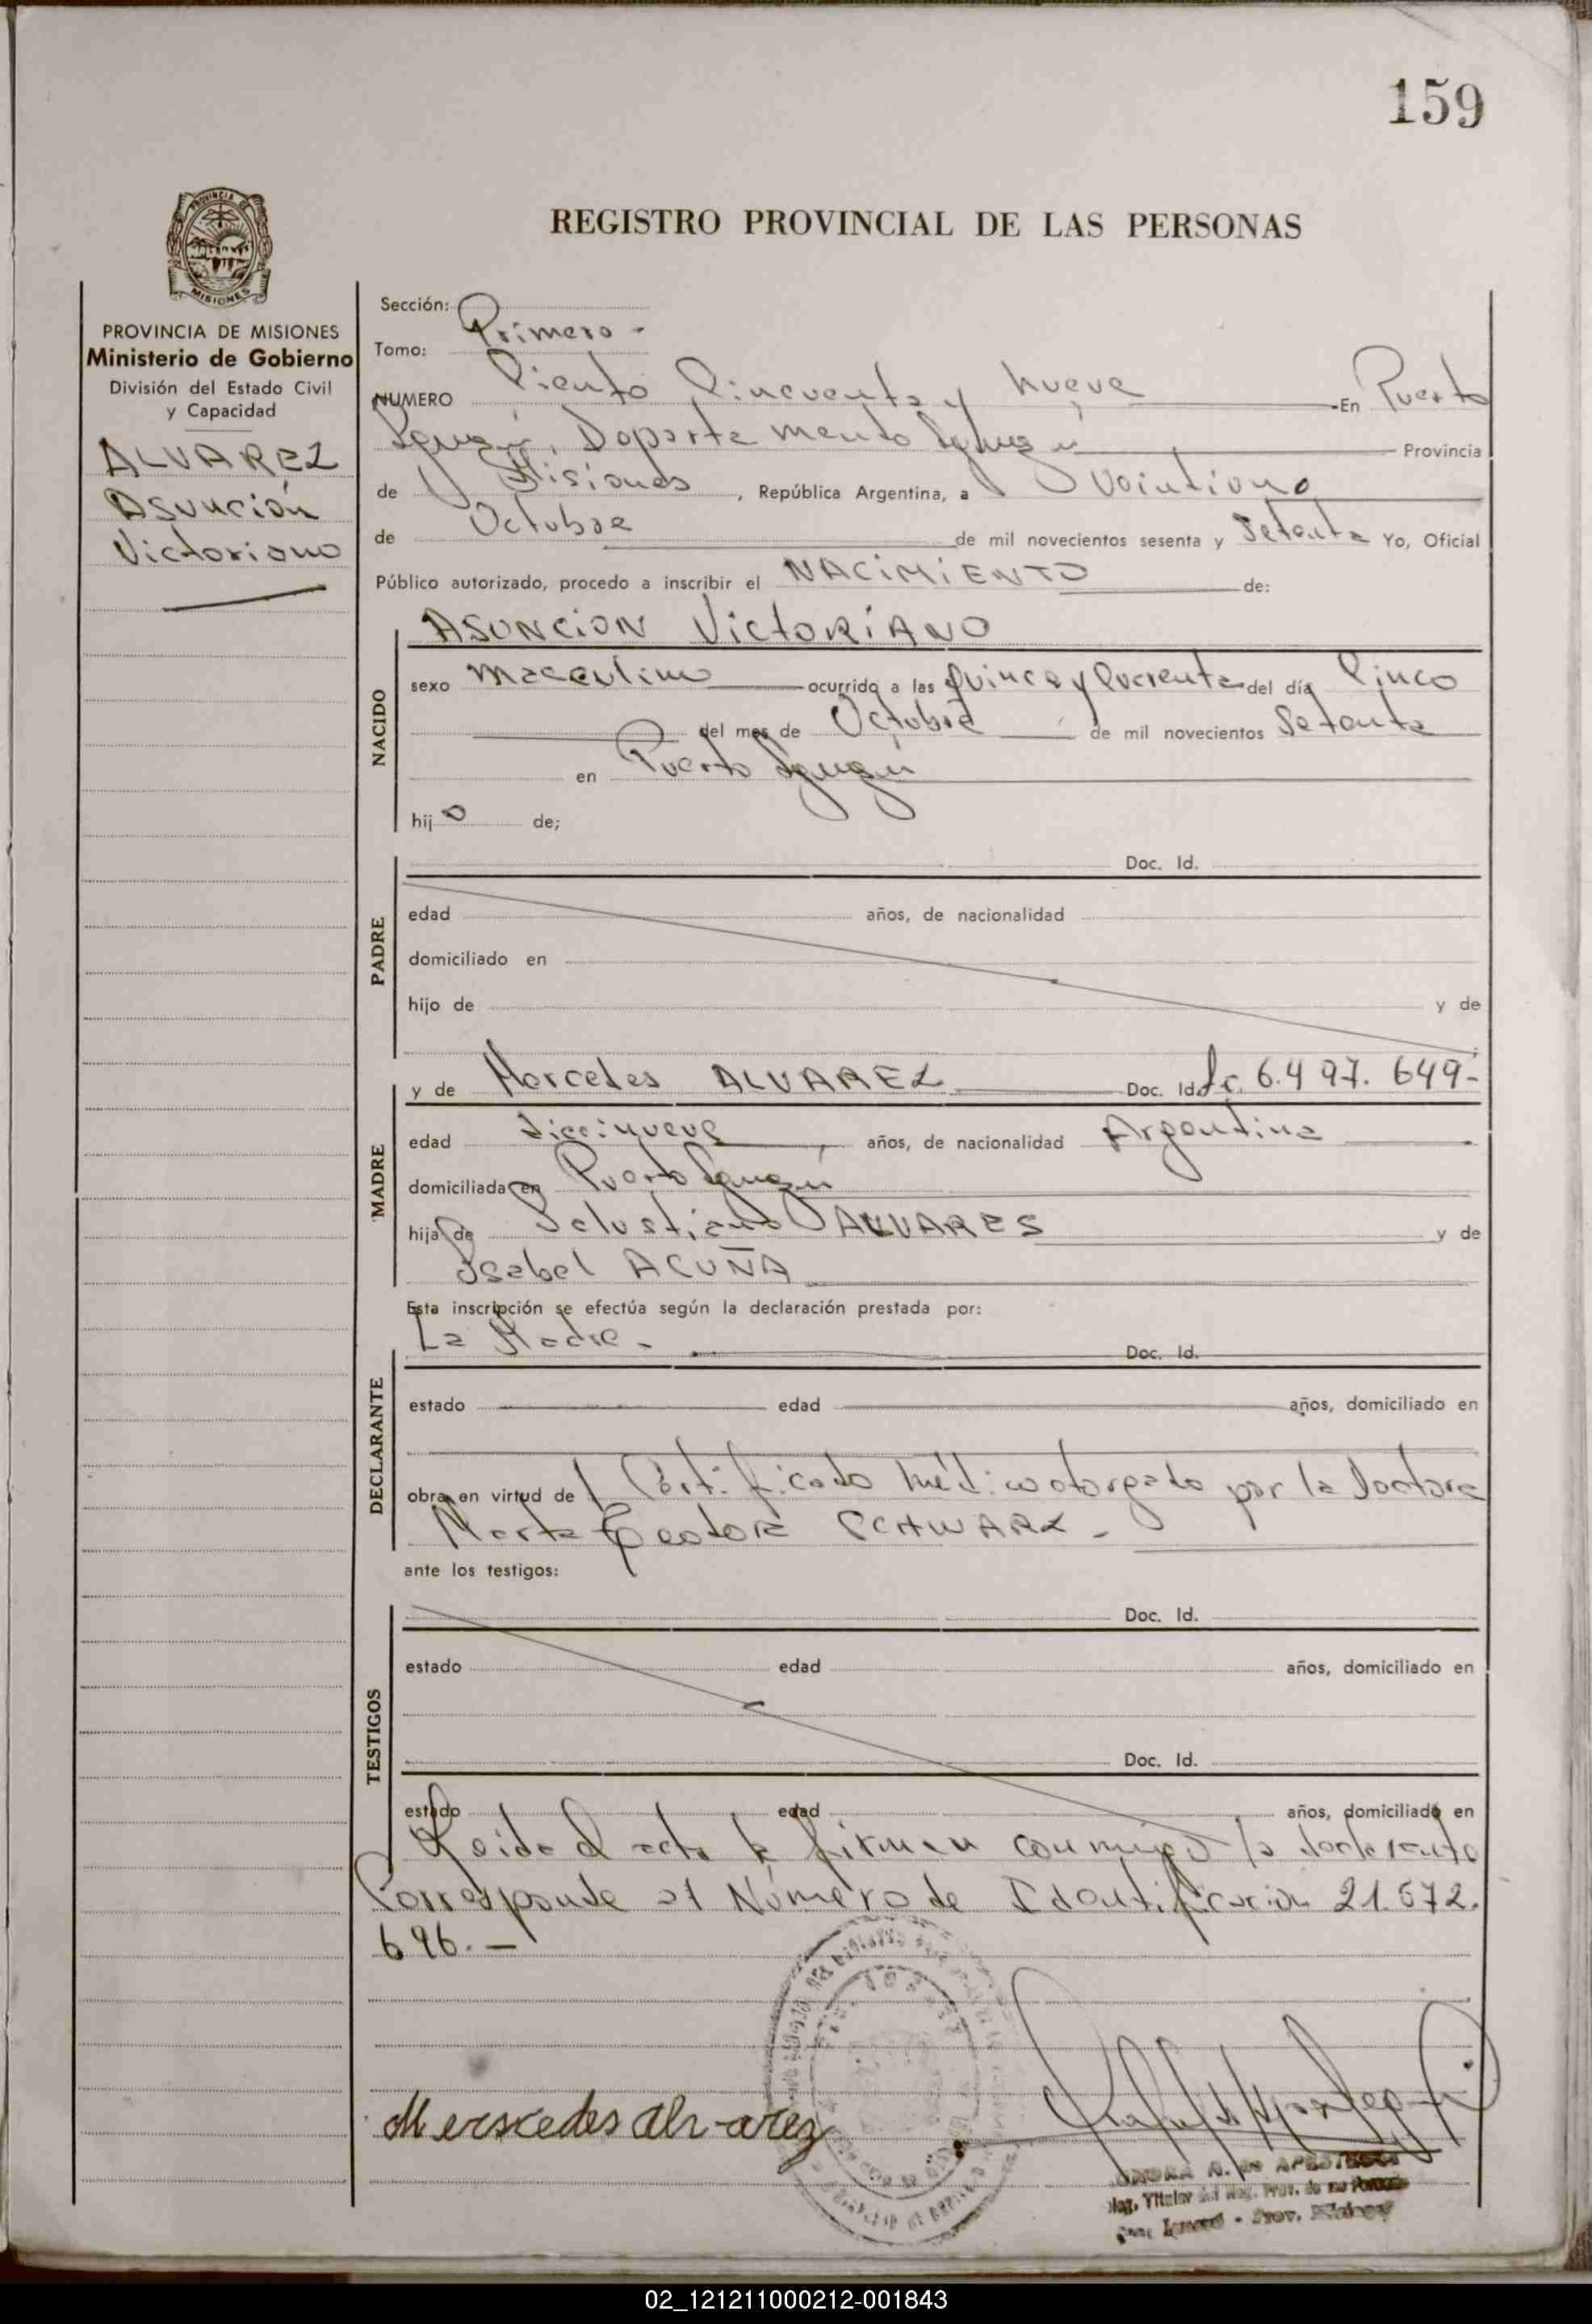 159
REGISTRO PROVINCIAL DE LAS PERSONAS
PROVINCIA DE
MISIONES
PROVINCIA DE MISIONES
Ministerio de Gobierno
División del Estado Civil
y Capacidad
ALVAREZ
Asunción
Victoriano
Sección:
Primero -
Tomo:
NUMERO Ciento Cincuenta y Nueve En Puerto
Iguazú, Departamento Iguazú Provincia
de Misiones, República Argentina, a Veintiuno
de Octubre de mil novecientos sesenta y Setenta Yo, Oficial
Público autorizado, procedo a inscribir el NACIMIENTO de:
NACIDO
ASUNCION VICTORIANO
sexo Masculino ocurrido a las Quince y Cuarenta del día Cinco
del mes de Octubre de mil novecientos Setenta
en Puerto Iguazú
hijo de;
PADRE
Doc. Id.
edad años, de nacionalidad
domiciliado en
hijo de y de
MADRE
y de Mercedes ALVAREZ Doc. Id. Lc. 6.497.649-
edad diecinueve años, de nacionalidad Argentina
domiciliada en Puerto Iguazú
hija de Salustiano ALVARES y de
Isabel ACUÑA
Esta inscripción se efectúa según la declaración prestada por:
DECLARANTE
La Madre - Doc. Id.
estado edad años, domiciliado en
obra en virtud de Certificado Médico otorgado por la Doctora
Marta Teodora SCHWARZ -
ante los testigos:
TESTIGOS
Doc. Id.
estado edad años, domiciliado en
Doc. Id.
estado edad años, domiciliado en
Leida el acta la firman conmigo la declarante
Corresponde al Número de Identificación 21.572.
696.-
Mercedes Alvarez
02_121211000212-001843